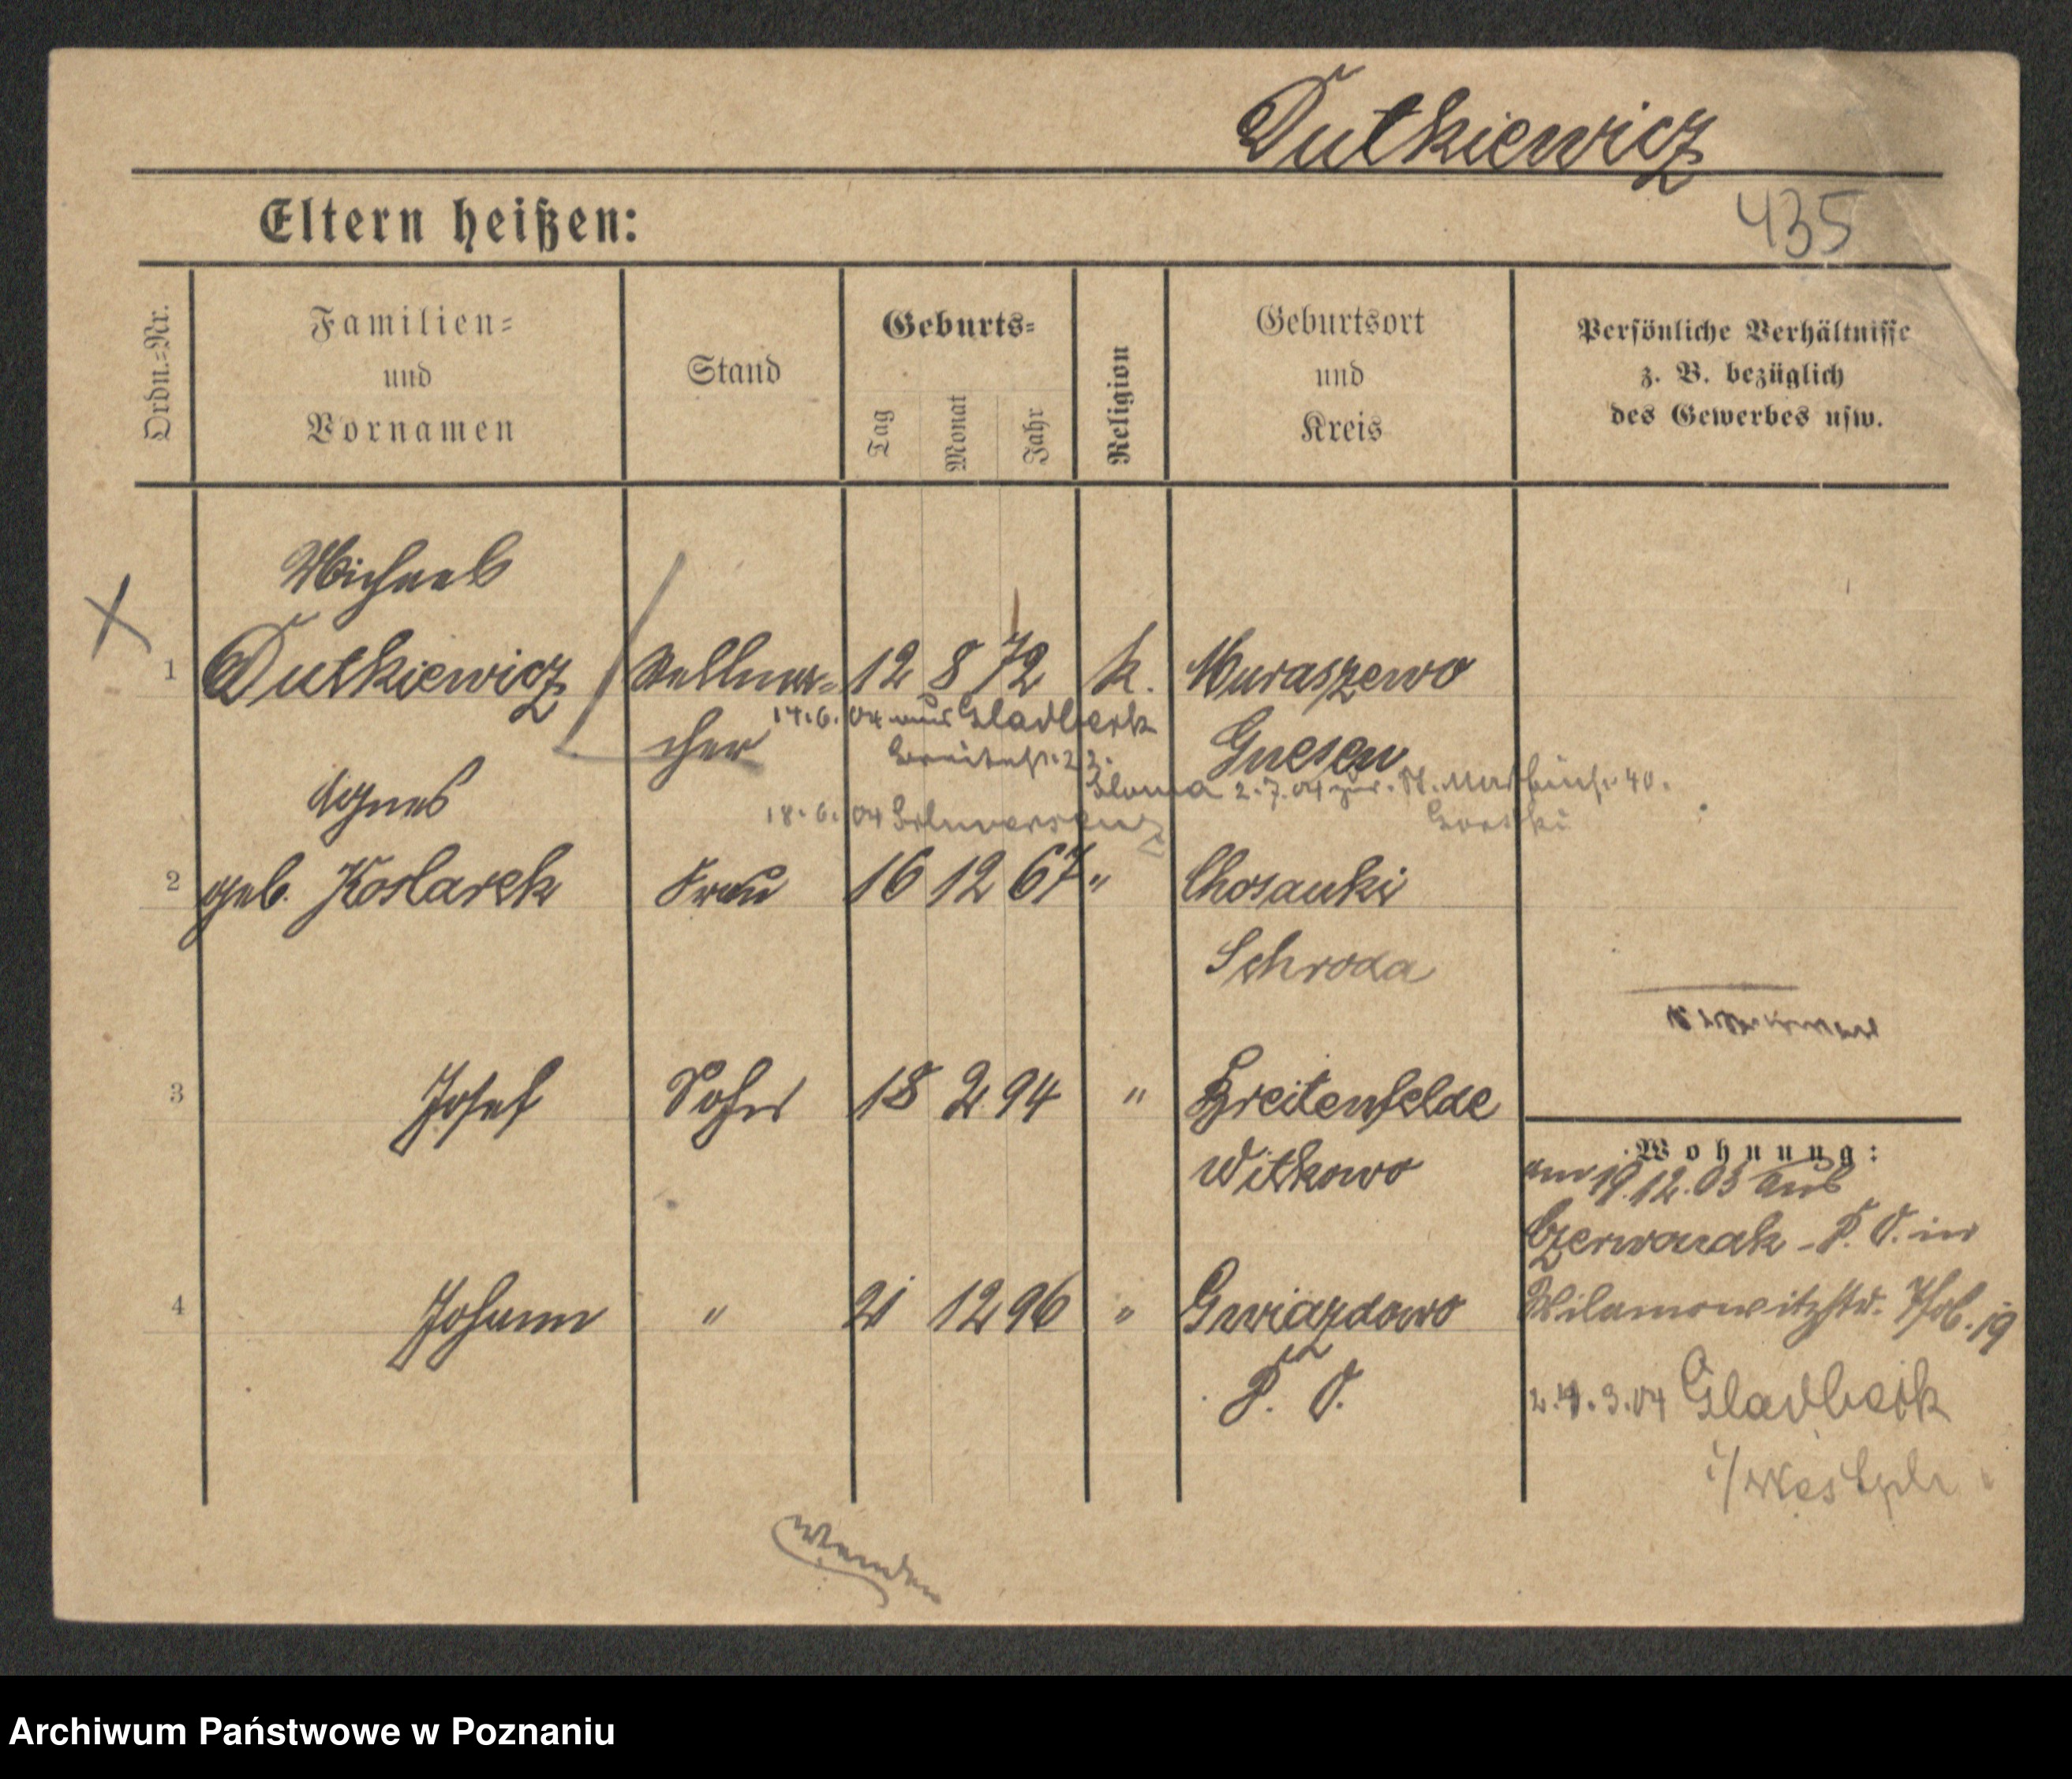 Dutkiewicz
435
Eltern heißen:
Ordn.-Nr.
Familien-
und
Vornamen
Stand
Geburts-
Tag
Monat
Jahr
Religion
Geburtsort
und
Kreis
Persönliche Verhältnisse
z. B. bezüglich
des Gewerbes usw.
Michael
1 Dutkiewicz Stellma- 12 8 72 k. Muraszewo
cher
14.6.04 aus Gladbeck
Gnesen
2.7.04 40.
Agnes
18.6.04
2 geb. Koslarek Frau 16 12 67 " Chosanki
Schroda
3 Josef Sohn 18 2 94 " Breitenfelde
Witkowo
4 Johann " 21 12 96 " Gwiazdowo
P. O.
Wohnung:
am 19.12.03 aus
Czerwonak - P. O. in
Wilamowitzstr. 19
3.04 Gladbeck
i/Westph
wenden
Archiwum Państwowe w Poznaniu